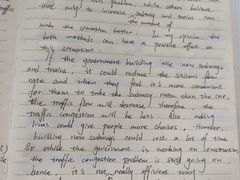 problem, while others believe
that only to increase subway and trains can
the number of
make the situation better. In my opinion, the
both methods can have a positive effect on
this situation.
If the government building the new subways
and trains, it could reduce the citizens flow
rate and when they feel it's more convenient
for them to take the subway rather than the car,
the traffic flow will decrease. Therefore, the
traffic congestion will be less. Also, adding
lines could give people more choices. However,
building new subways could cost a lot of time
So while the government is working on constructing
the traffic congestion problem is still going on
hence, it's not really efficient way